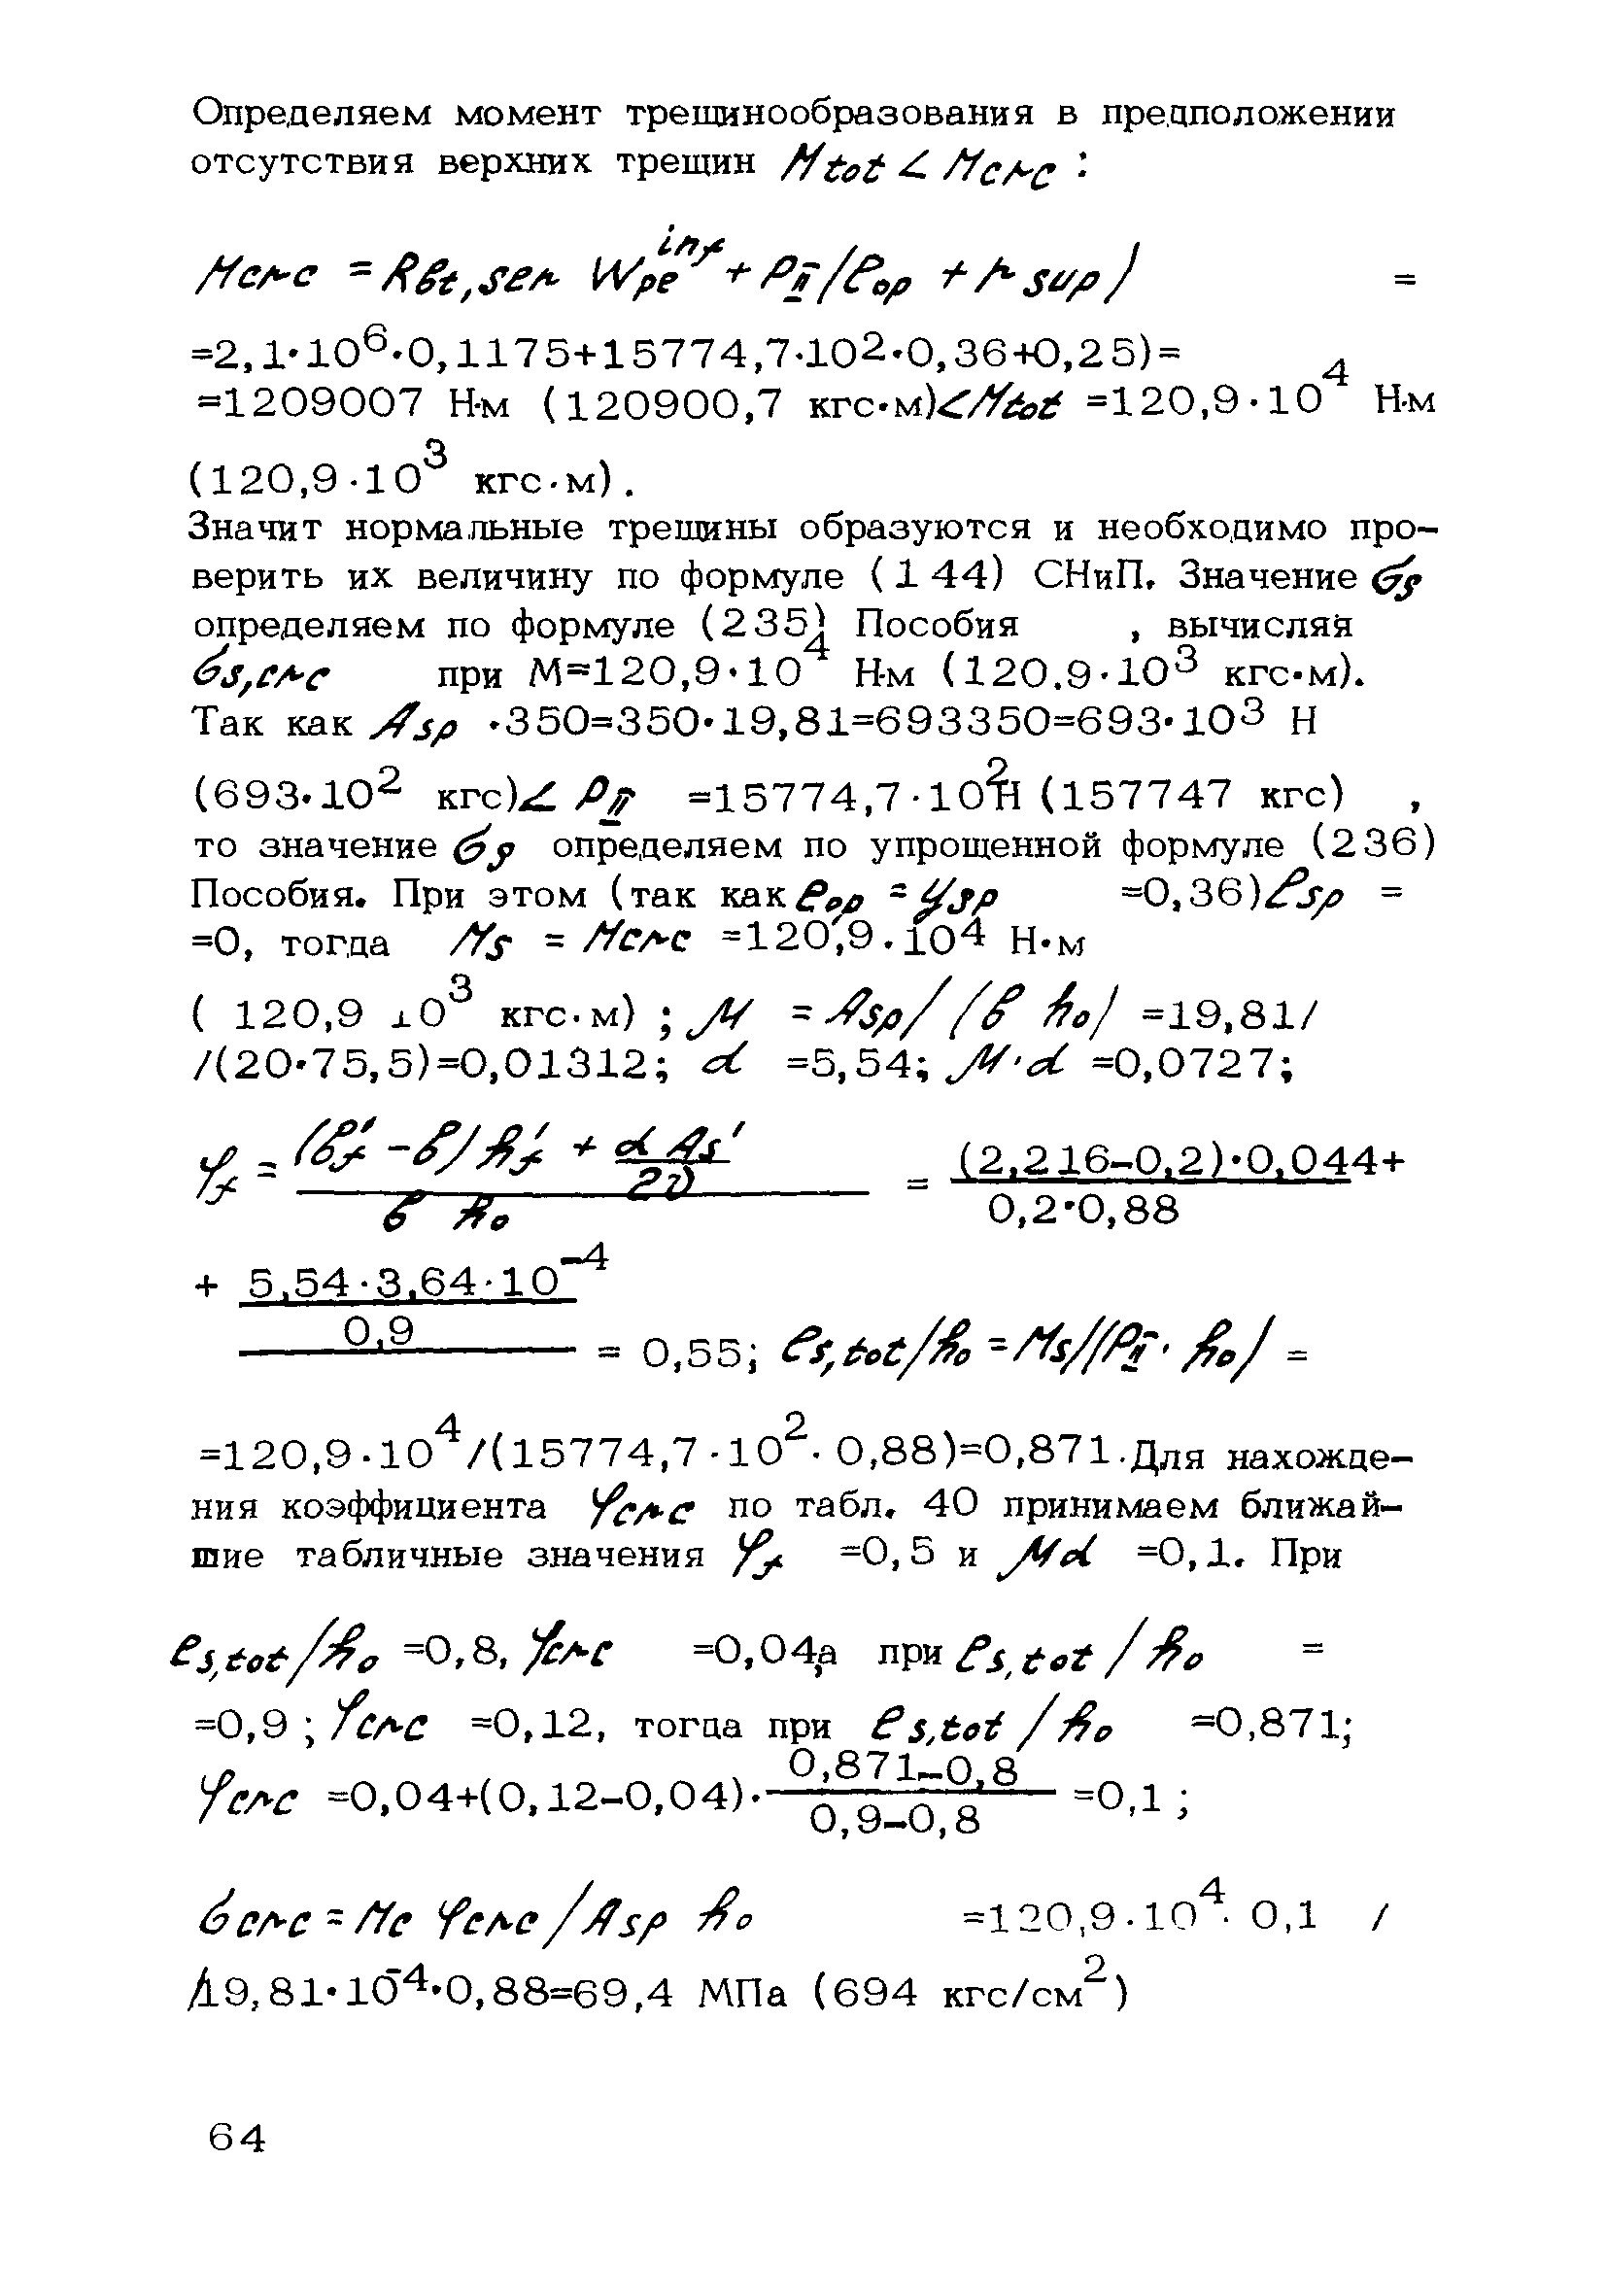 Определяем момент трещинообразования в предположении
отсутствия верхних трещин Mtot < Mcrc :
Mcrc = Rbt,ser Wpe^inf + PII/eop + r sup) =
=2,1·10⁶·0,1175+15774,7·10²·0,36+0,25)=
=1209007 Н·м (120900,7 кгс·м)<Mtot =120,9·10⁴ Н·м
(120,9·10³ кгс·м).
Значит нормальные трещины образуются и необходимо про-
верить их величину по формуле (144) СНиП. Значение σs
определяем по формуле (235) Пособия , вычисляя
σs,crc при М=120,9·10⁴ Н·м (120.9·10³ кгс·м).
Так как Asp ·350=350·19,81=693350=693·10³ Н
(693·10² кгс)< PII =15774,7·10²Н (157747 кгс) ,
то значение σs определяем по упрощенной формуле (236)
Пособия. При этом (так как eop = ysp =0,36) esp =
=0, тогда Ms = Mcrc =120,9.10⁴ Н·м
( 120,9 10³ кгс·м) ; μ = Asp/ (b ho) =19,81/
/(20·75,5)=0,01312; α =5,54; μ·α =0,0727;
φf = ((b'f -b) h'f + α As'/2ν) / (b ho) = (2,216-0,2)·0,044+ / 0,2·0,88
+ 5,54·3,64·10⁻⁴
0,9 = 0,55; es,tot/ho = Ms/(PII· ho) =
=120,9·10⁴/(15774,7·10²· 0,88)=0,871.Для нахожде-
ния коэффициента φcrc по табл. 40 принимаем ближай-
шие табличные значения φf =0,5 и μα =0,1. При
es,tot/ho =0,8, φcrc =0,04,а при es,tot / ho =
=0,9 ; φcrc =0,12, тогда при es,tot / ho =0,871;
φcrc =0,04+(0,12-0,04)· (0,871-0,8)/(0,9-0,8) =0,1 ;
σcrc = Mc φcrc / Asp ho =120,9·10⁴· 0,1 /
/19,81·10⁻⁴·0,88=69,4 МПа (694 кгс/см²)
64